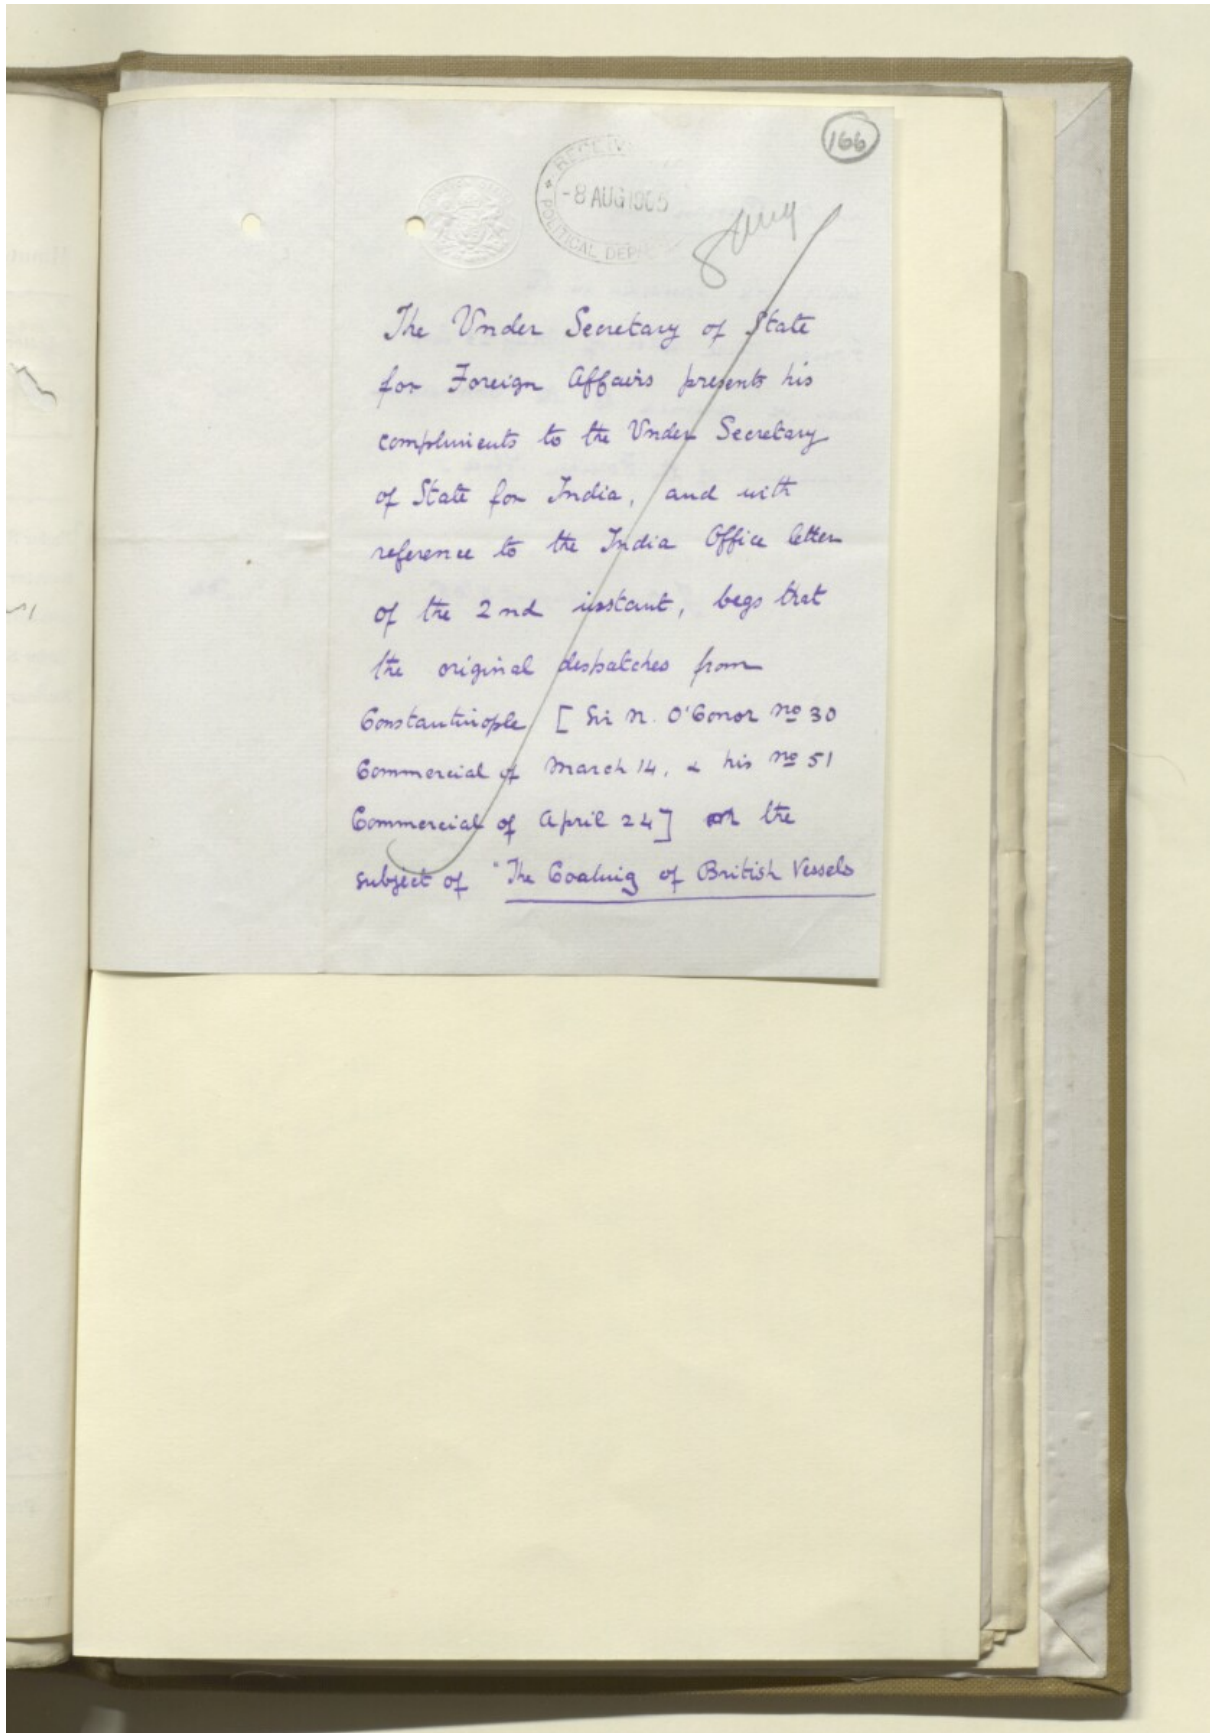 166
RECEIV
-8 AUG 1905
POLITICAL DEP
8 Aug
The Under Secretary of State
for Foreign Affairs presents his
compliments to the Under Secretary
of State for India, and with
reference to the India Office letter
of the 2nd instant, begs that
the original despatches from
Constantinople [Sir N. O'Conor No 30
Commercial of March 14, & his No 51
Commercial of April 24] on the
subject of "The Coaling of British Vessels